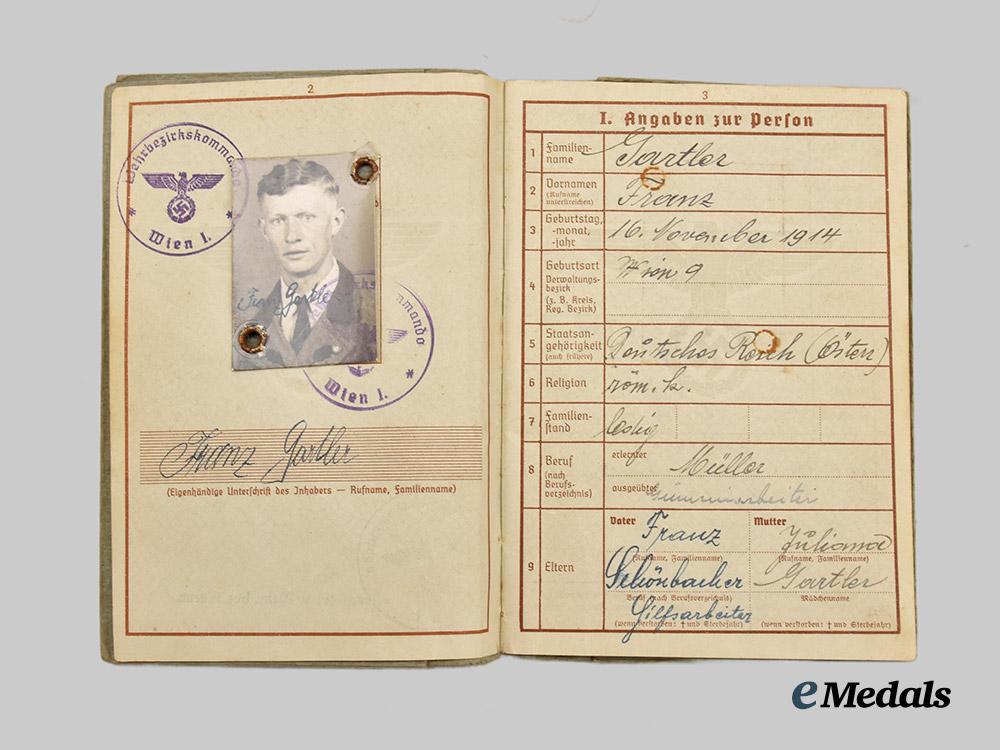 2
Wehrbezirkskommando
Wien I.
Franz Gartler
mmando
Wien I.
Franz Gartler
(Eigenhändige Unterschrift des Inhabers — Rufname, Familienname)
3
I. Angaben zur Person
1 Familien-name Gartler
2 Vornamen (Rufname unterstreichen) Franz
3 Geburtstag, -monat, -jahr 16. November 1914
4 Geburtsort Verwaltungs-bezirk (z. B. Kreis, Reg. Bezirk) Wien 9
5 Staatsan-gehörigkeit (auch frühere) Deutsches Reich (Österr)
6 Religion röm. k.
7 Familien-stand ledig
8 Beruf (nach Berufs-verzeichnis) erlernter Müller
ausgeübter Gummiarbeiter
9 Eltern
Vater Franz
Mutter Juliana
(Rufname, Familienname)
(Rufname, Familienname)
Schönbacher
Gartler
Beruf (nach Berufsverzeichnis)
Mädchenname
Hilfsarbeiter
(wenn verstorben: † und Sterbejahr)
(wenn verstorben: † und Sterbejahr)
eMedals